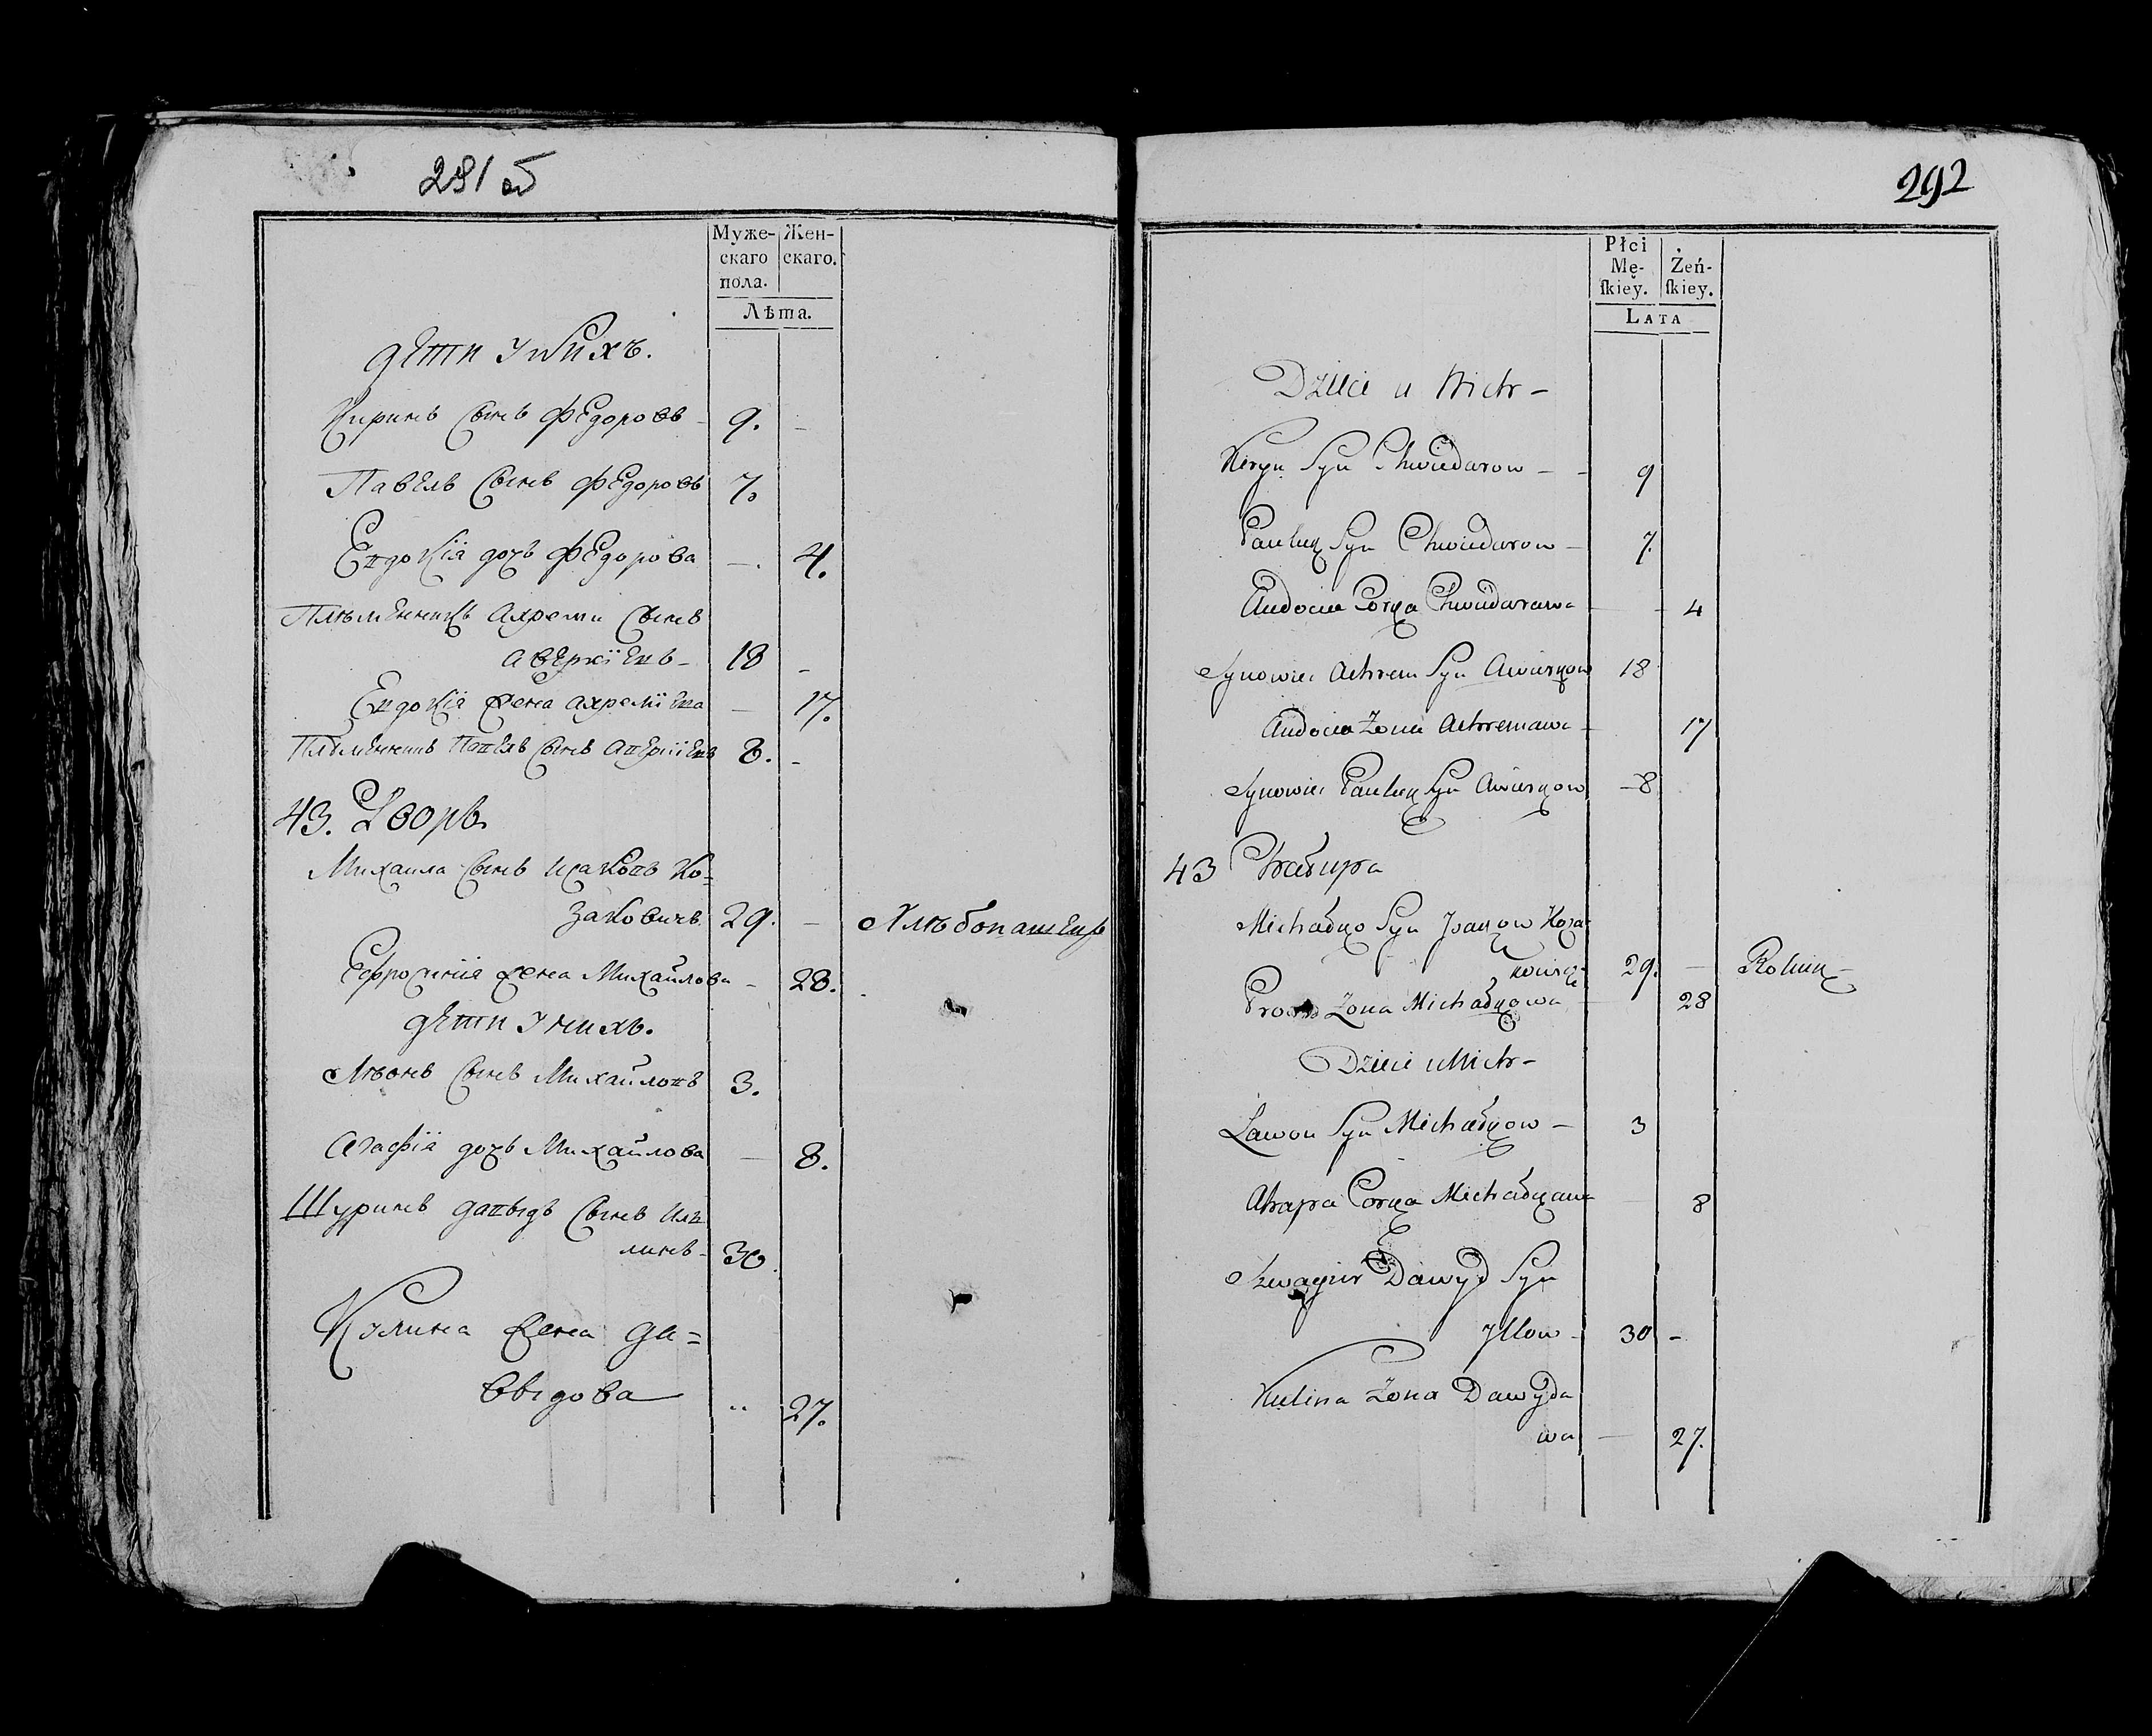 291 об
Муже-
скаго
пола.
Жен-
скаго.
Лѣта.
дети у нихъ.
Киринъ сынъ Федоровъ - 9. -
Павелъ сынъ Федоровъ 7.
Евдокія дочь Федорова - 4.
Племенникъ Ахремъ сынъ
Аверкіевъ - 18 -
Евдокія жена Ахреміева - 17.
Племенникъ Павелъ сынъ Аверкіевъ 8. -
43. Дворъ
Михаила сынъ Исаковъ Ко=
заковичъ 29. - Хлѣбопашецъ
Ефросинія жена Михайлова - 28.
дети у нихъ.
Лѣонъ сынъ Михайловъ 3.
Агафія дочь Михайлова - 8.
Шуринъ Давыдъ сынъ
30.
Кулина жена Да=
выдова " 27.
292
Płci
Mę-
ſkiey.
Żeń-
ſkiey.
LATA
Dzieci u Nich -
Kiryn Syn Chwiedarow - - 9
Pauluk Syn Chwiedarow - 7.
Audocia Corka Chwiedarawa - - 4
Synowiec Achrem Syn Awierkow 18
Audocia Zona Achremawa - 17
Synowiec Pauluk Syn Awierkow - 8
43 Chałupa
Michałko Syn Isakow Koza-
kowicz 29. - Rolnik -
Zona Michałkowa - 28
Dzieci u Nich -
Lawon Syn Michałkow - 3
Ahapa Corka Michałkawa - 8
Szwagier Dawyd Syn
Illow - 30 -
Kulina Zona Dawyda
wa - 27.